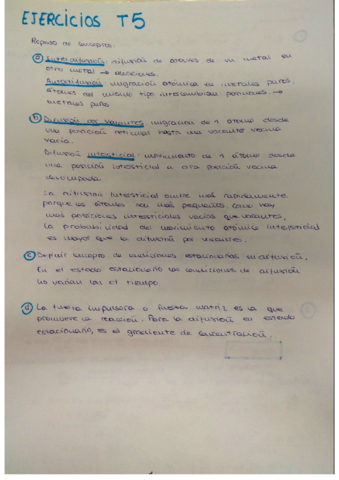 EJERCICIOS T5
Repaso de conceptos:
a) Interdifusión: difusión de átomos de un metal en
otro metal → aleaciones.
Autodifusión: migración atómica en metales puros.
átomos del mismo tipo intercambian posiciones →
metales puro
b) Difusión por vacantes: migración de 1 átomo desde
una posición reticular hasta una vacante vecina
vacía.
Difusión intersticial: movimiento de 1 átomo desde
una posición intersticial a otra posición vecina
desocupada.
La difusión intersticial ocurre más rápidamente
porque los átomos son más pequeños como hay
más posiciones intersticiales vacías que vacantes,
la probabilidad de movimiento atómico intersticial
es mayor que la difusión por vacantes.
c) Definir concepto de condiciones estacionarias en difusión.
En el estado estacionario las condiciones de difusión
no varían con el tiempo
d) La fuerza impulsora o fuerza motriz es la que
promueve la reacción. Para la difusión en estado
estacionario, es el gradiente de concentración.